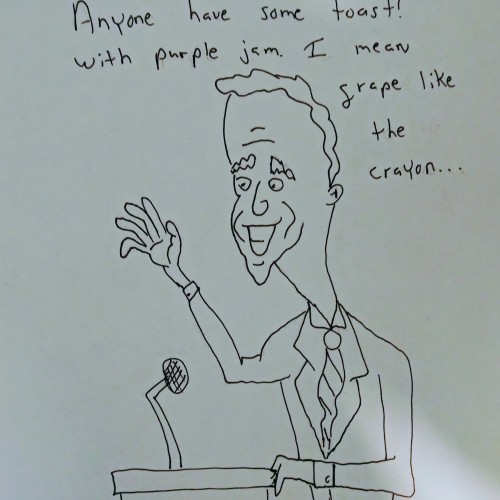 Anyone have some toast!
with purple jam. I mean
grape like
the
crayon...
c